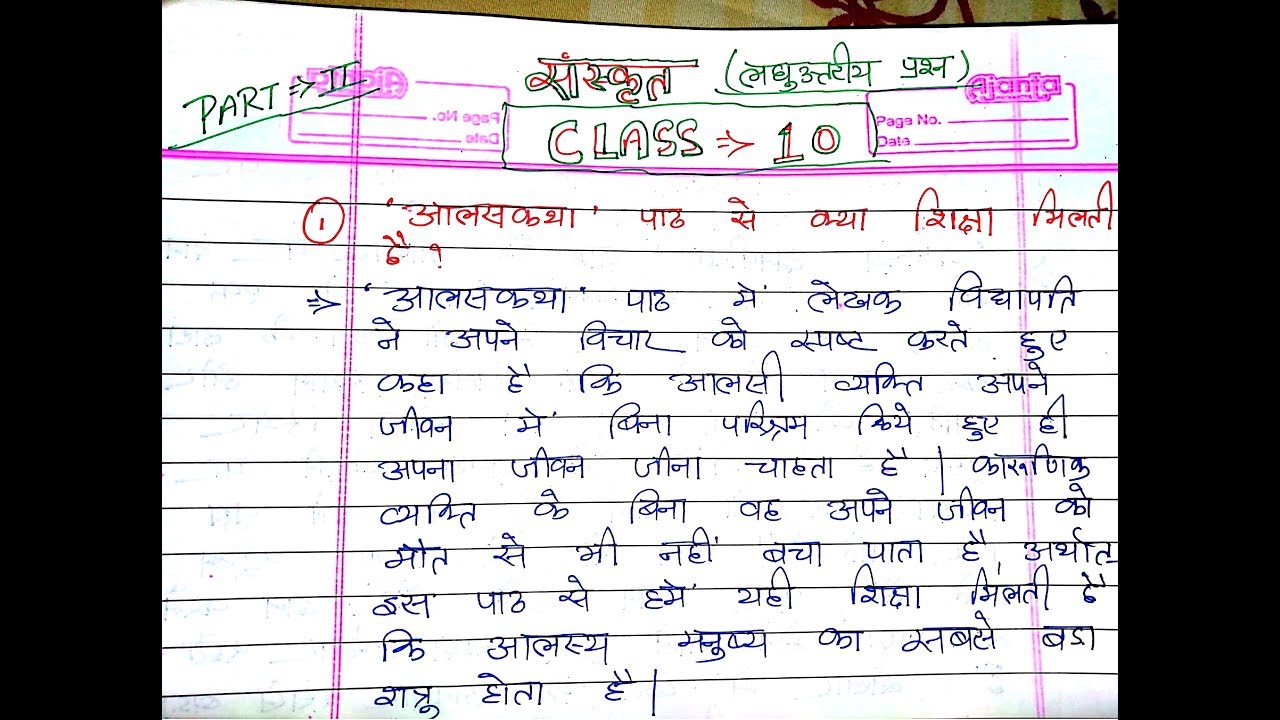 PART => II
सांस्कृत (लघुउत्तरीय प्रश्न)
Ajanta
Page No.
Date
CLASS => 10
① 'आलसकथा' पाठ से क्या शिक्षा मिलती
है ?
=> 'आलसकथा' पाठ में लेखक विद्यापति
ने अपने विचार को स्पष्ट करते हुए
कहा है कि आलसी व्यक्ति अपने
जीवन में बिना परिश्रम किये हुए ही
अपना जीवन जीना चाहता है | कारूणिक
व्यक्ति के बिना वह अपने जीवन को
मौत से भी नहीं बचा पाता है अर्थात
इस पाठ से हमें यही शिक्षा मिलती है
कि आलस्य मनुष्य का सबसे बड़ा
शत्रू होता है |